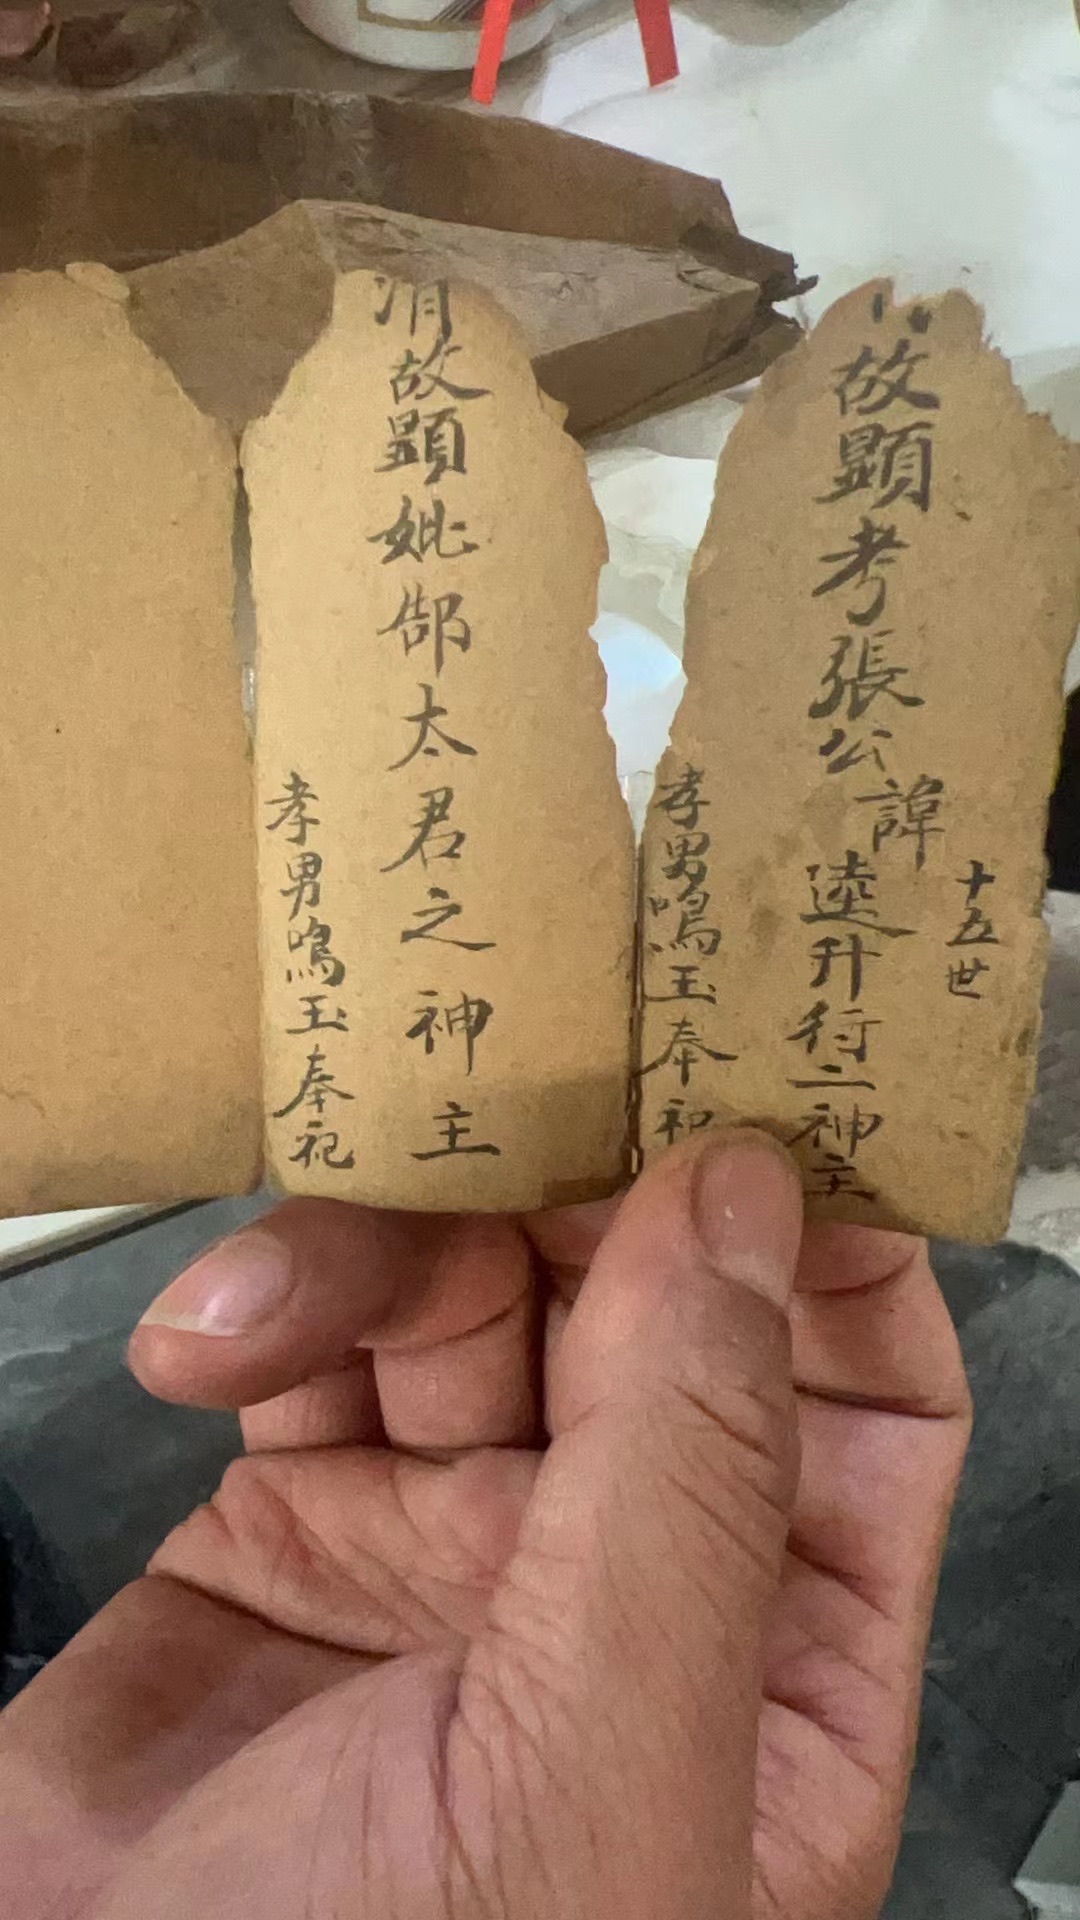 十五世
故顯考張公諱逵升行二神主
孝男鳴玉奉祀
清故顯妣郜太君之神主
孝男鳴玉奉祀